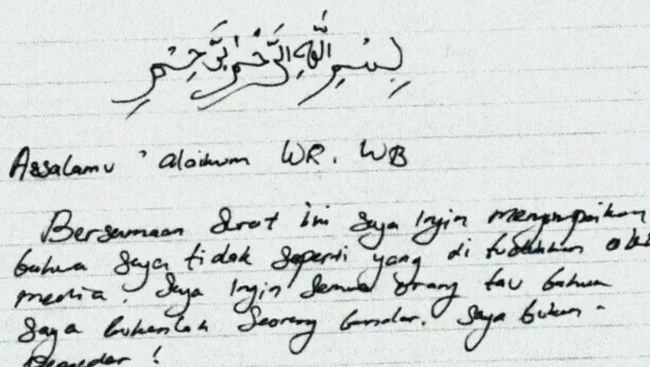 بِسْمِ اللَّهِ الرَّحْمٰنِ الرَّحِيْمِ
Assalamu 'alaikum WR. WB
Bersamaan Surat ini Saya Ingin menyampaikan
bahwa Saya tidak Seperti yang di tuduhkan oleh
media. Saya Ingin Semua Orang tau bahwa
Saya bukanlah Seorang bandar. Saya bukan -
Pengedar!